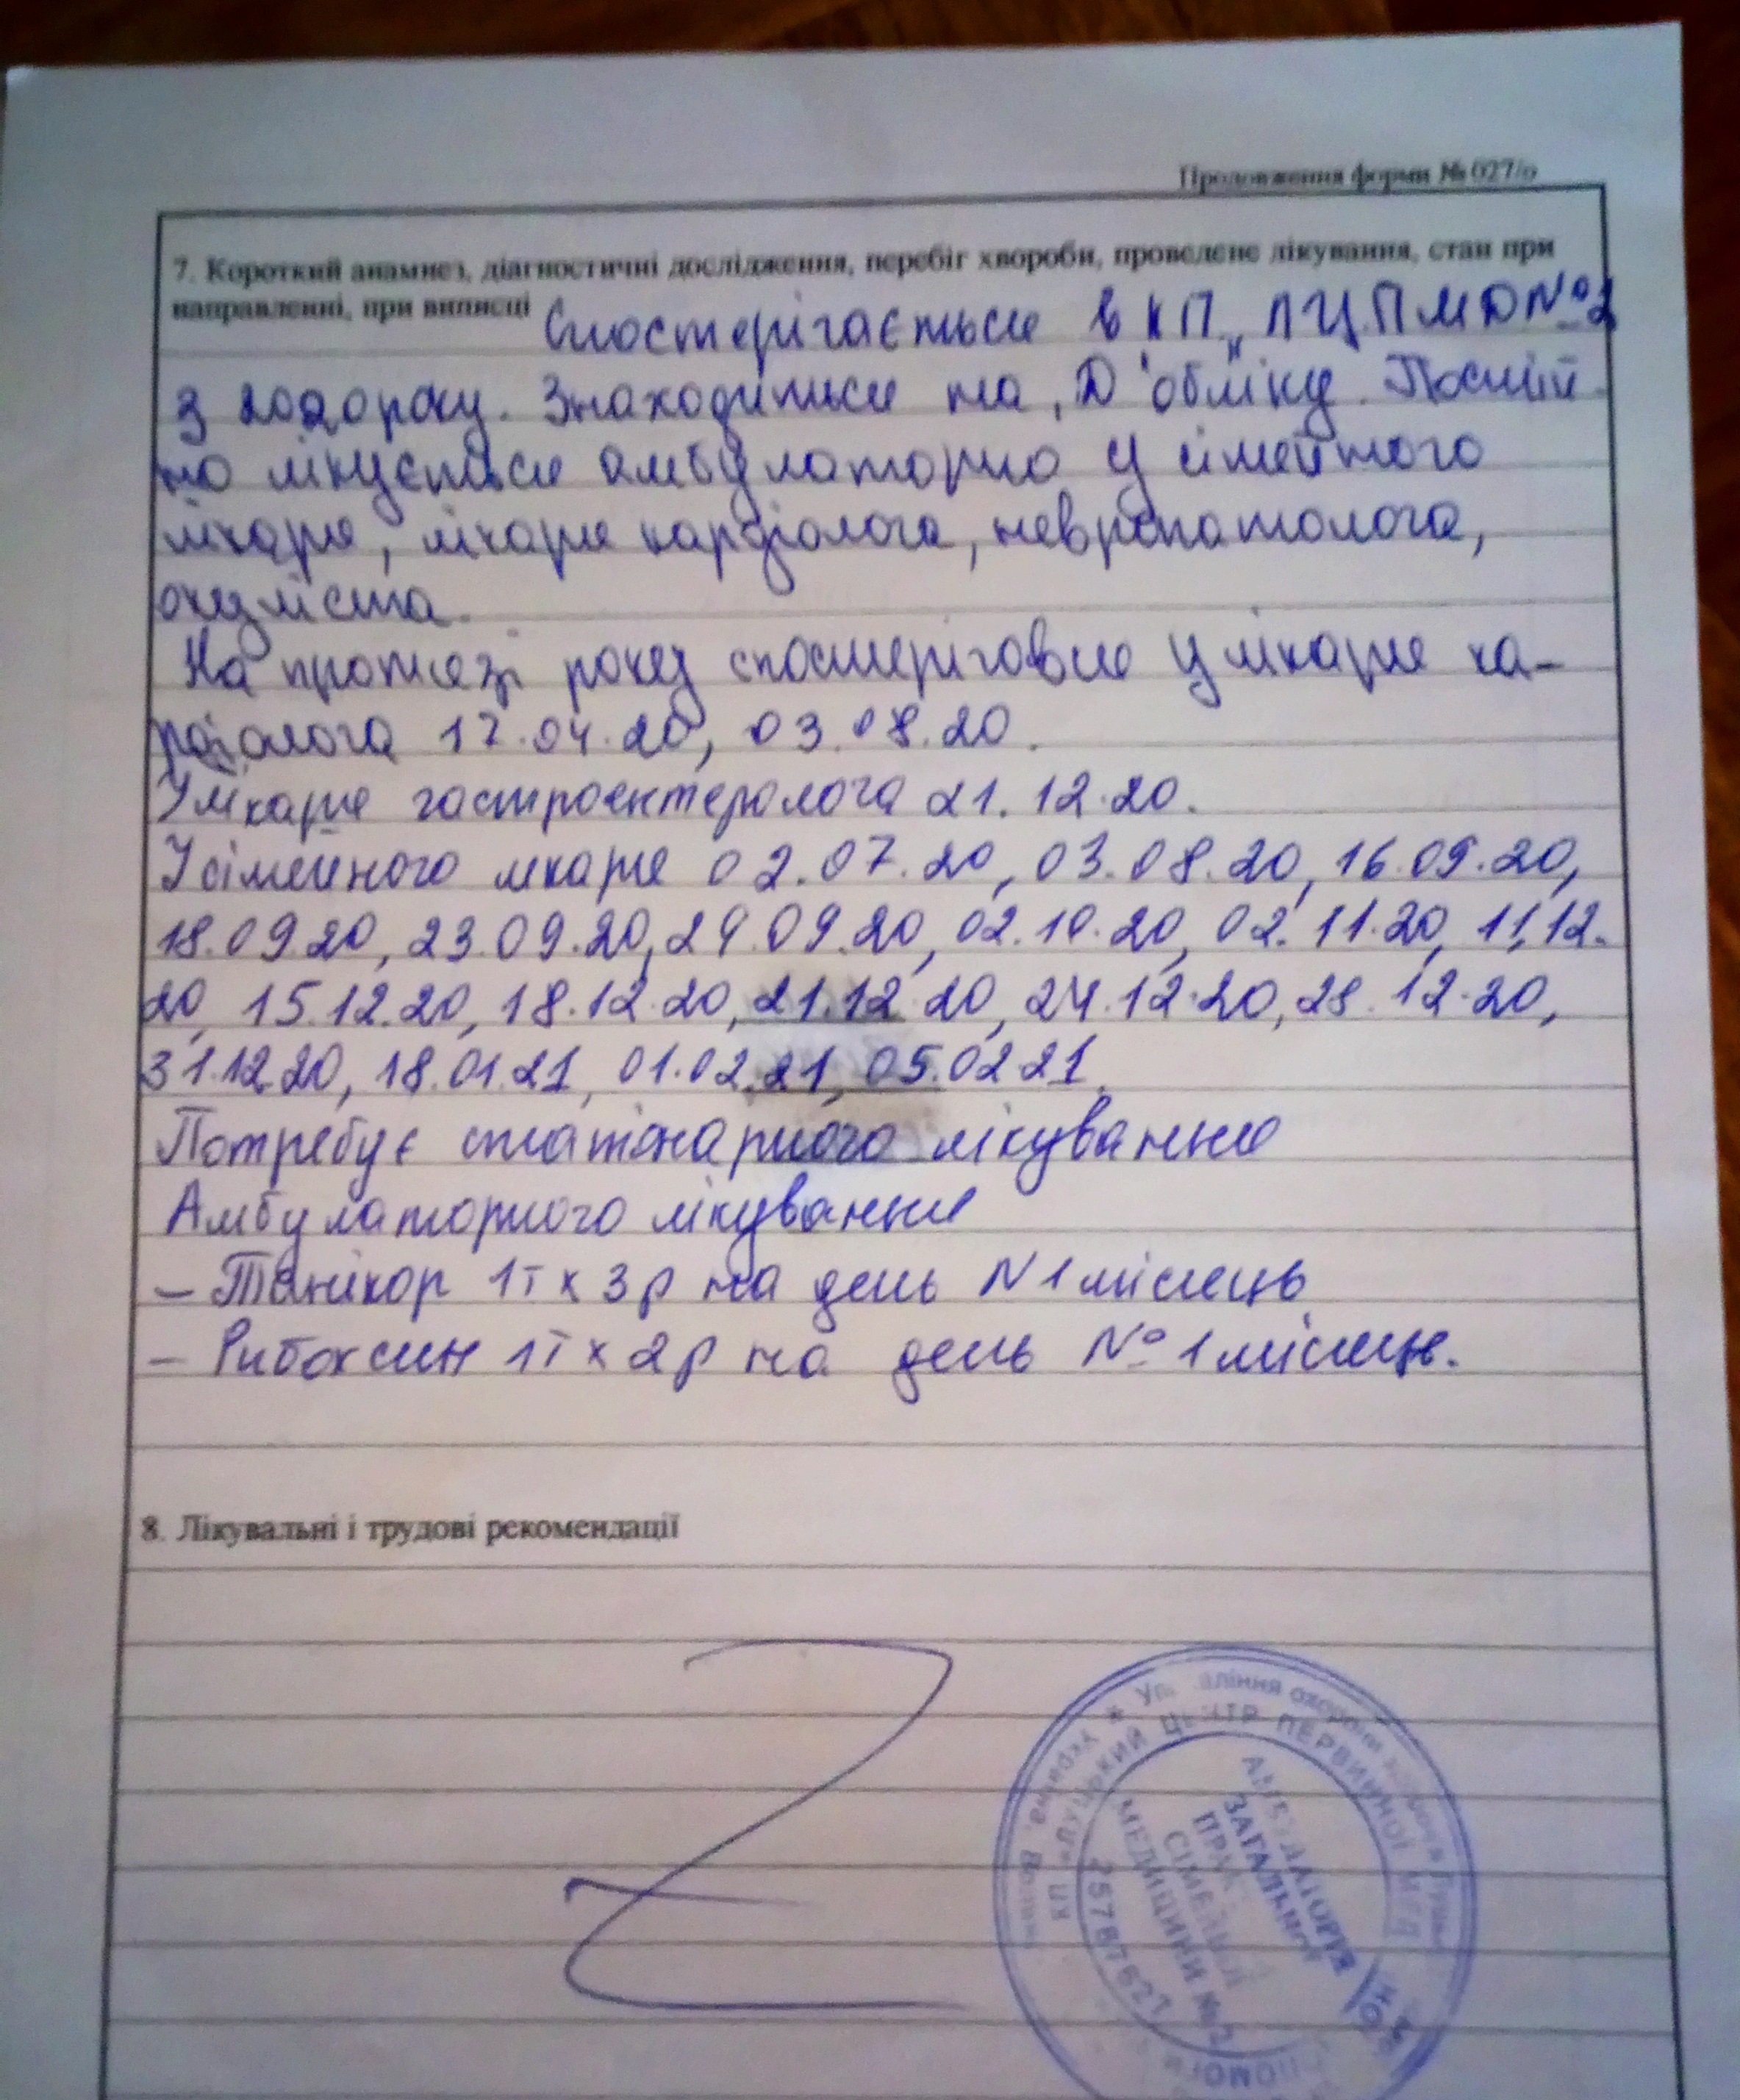 Продовження форми № 027/о
7. Короткий анамнез, діагностичні дослідження, перебіг хвороби, проведене лікування, стан при
направленні, при виписці Спостерігається в КП „ЛЦПМД №2
з 2020 року. Знаходиться на „Д" обліку. Постій-
но лікується амбулаторно у сімейного
лікаря, лікаря кардіолога, невропатолога,
окуліста.
На протязі року спостерігався у лікаря ка-
рдіолога 17.04.20, 03.08.20.
У лікаря гастроентеролога 21.12.20.
У сімейного лікаря 02.07.20, 03.08.20, 16.09.20,
18.09.20, 23.09.20, 29.09.20, 02.10.20, 02.11.20, 11.12.
20, 15.12.20, 18.12.20, 21.12.20, 24.12.20, 28.12.20,
31.12.20, 18.01.21, 01.02.21, 05.02.21.
Потребує стаціонарного лікування
Амбулаторного лікування
– 1т х 3р на день N 1 місяць
– Рибоксин 1т х 2р на день № 1 місяць.
8. Лікувальні і трудові рекомендації
Україна * Управління охорони здоров'я
ЛУЦЬКИЙ ЦЕНТР ПЕРВИННОЇ
АМБУЛАТОРІЯ
ЗАГАЛЬНОЇ
СІМЕЙНОЇ
МЕДИЦИНИ №2